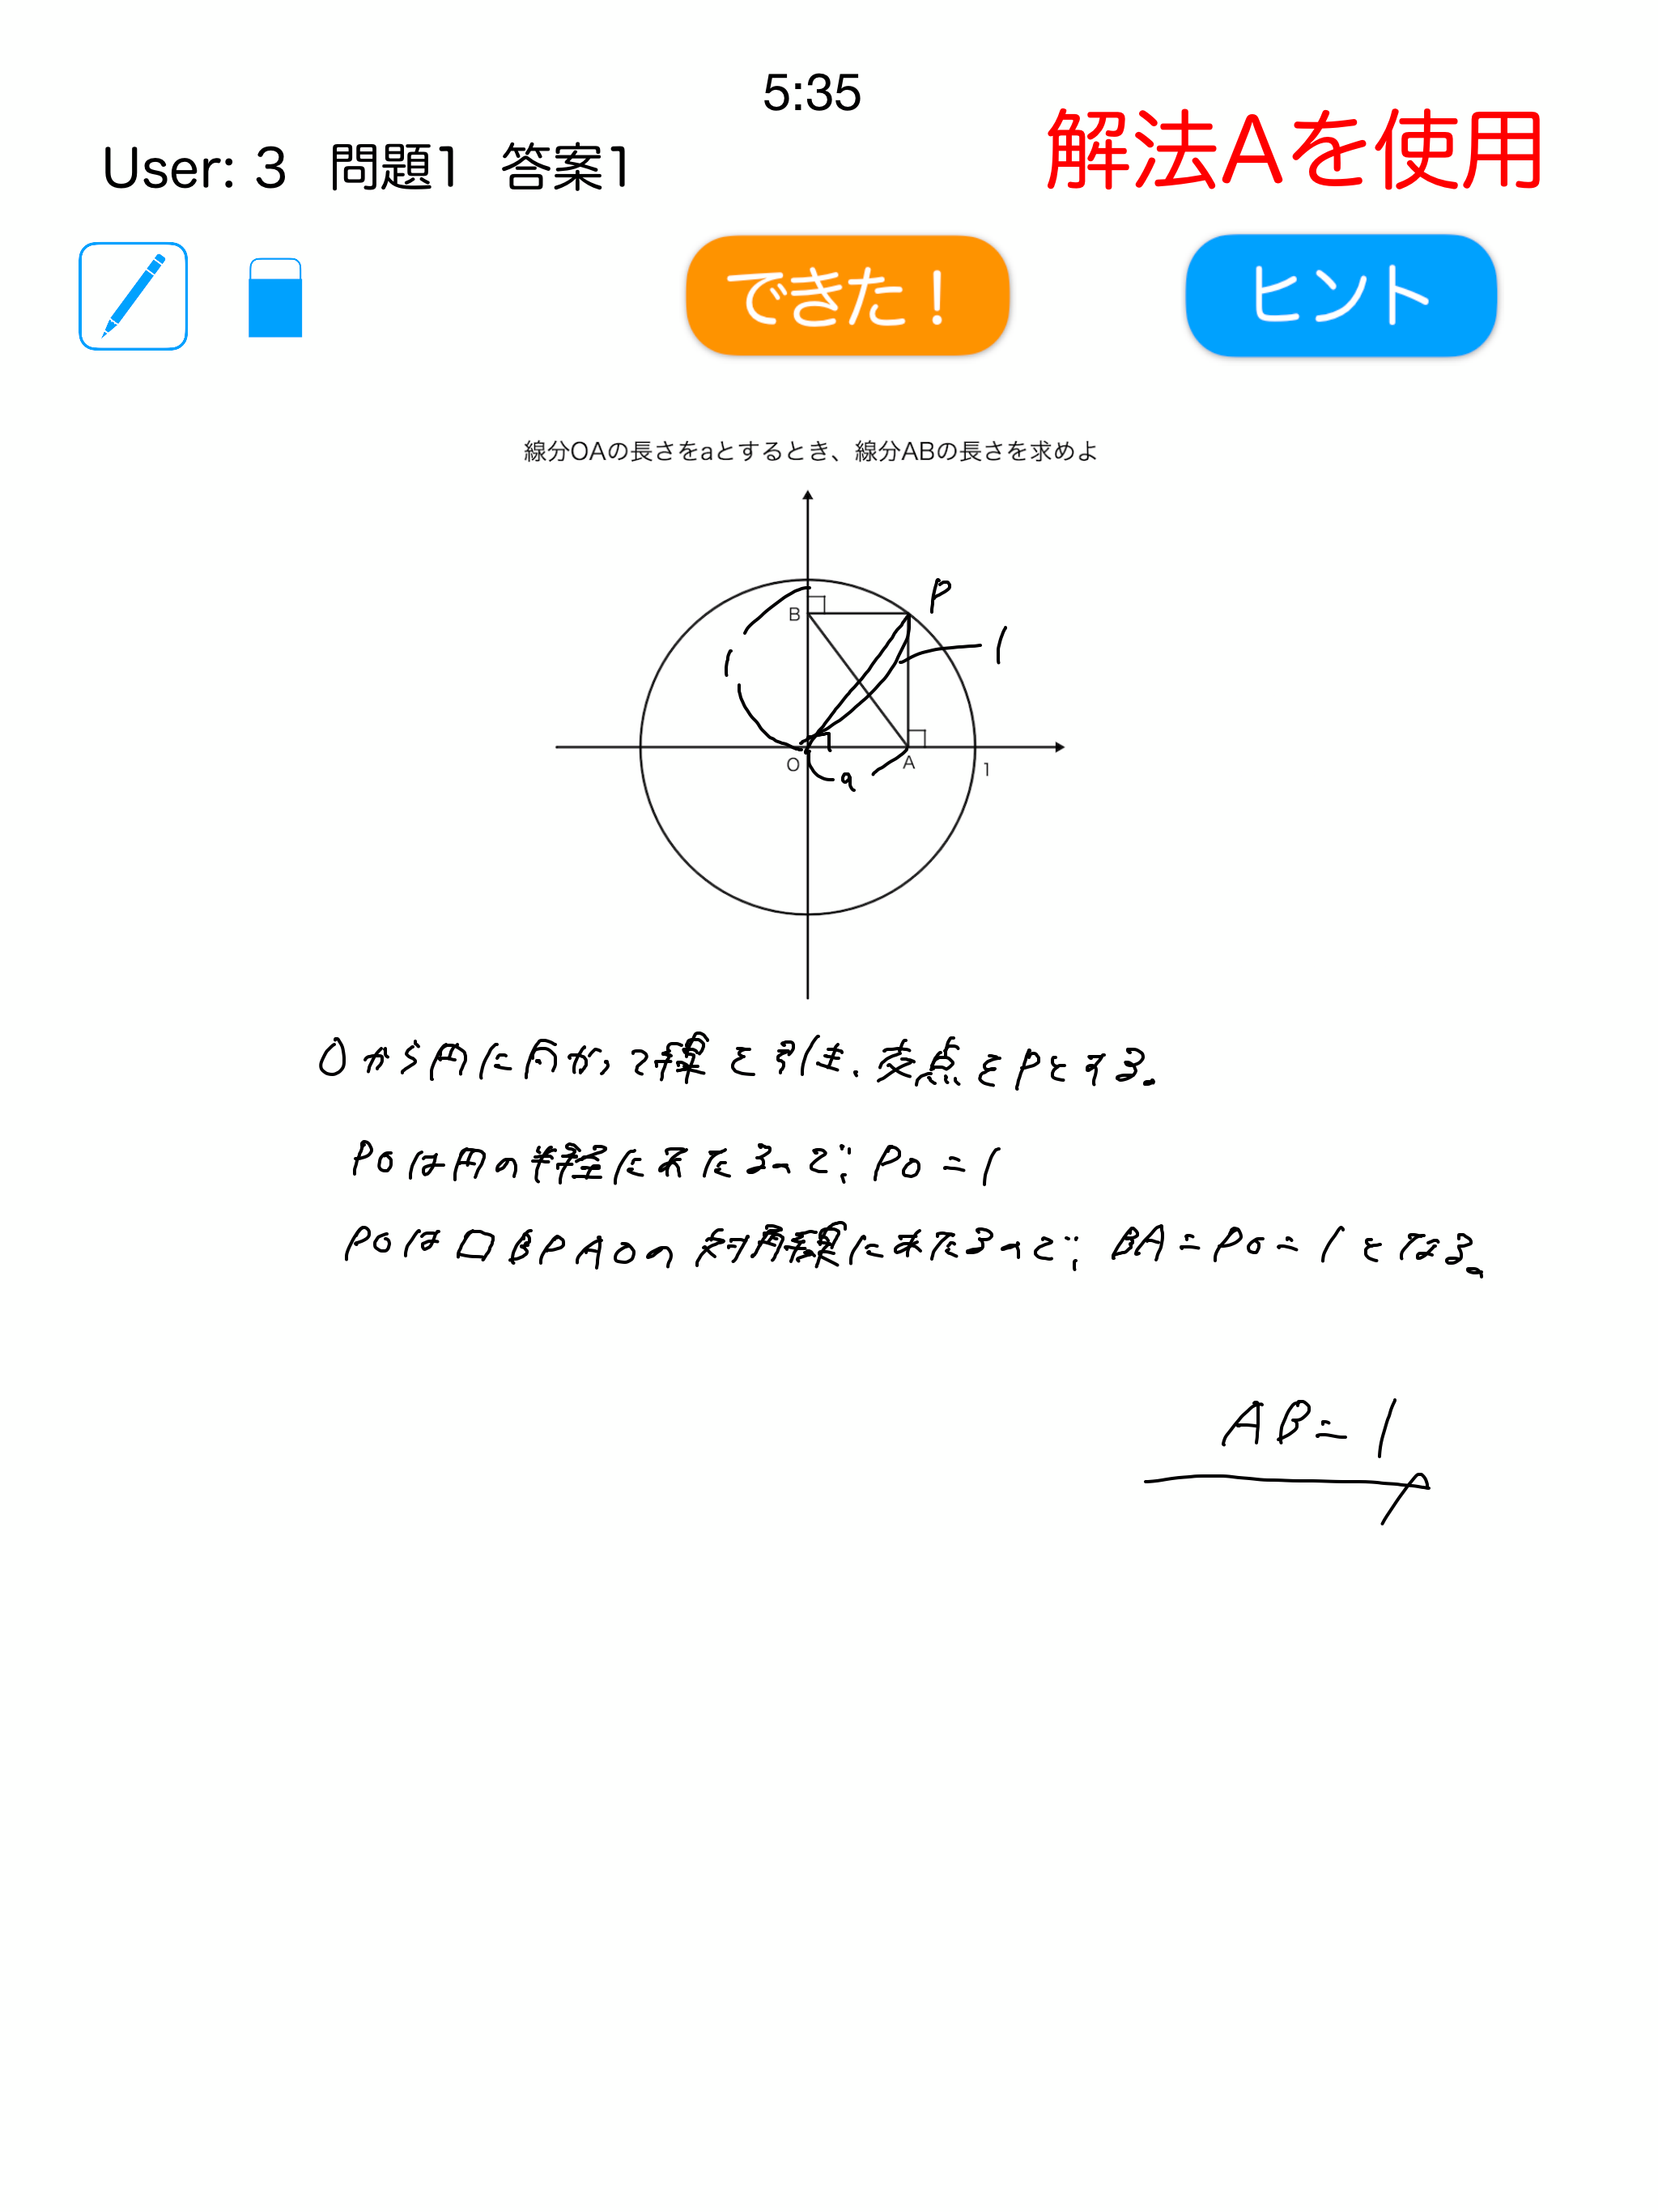 5:35
User: 3 問題1 答案1
解法Aを使用
できた！
ヒント
線分OAの長さをaとするとき、線分ABの長さを求めよ
P
B
1
O
A
1
a
Oから円に向かって線を引き、交点をPとする。
POは円の半径にあたるので、PO=1
POは□BPAOの対角線にあたるので、BA=PO=1となる。
AB=1